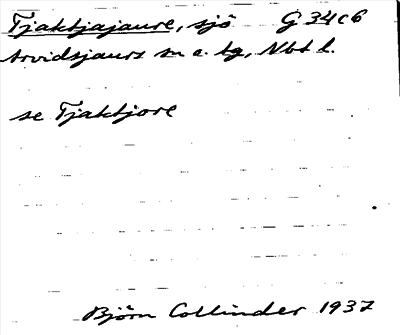 Tjaktjajaure, sjö G 34 c 6
Arvidsjaurs sn o. tg, Nbt l.
se Tjaktjore
Björn Collinder 1937